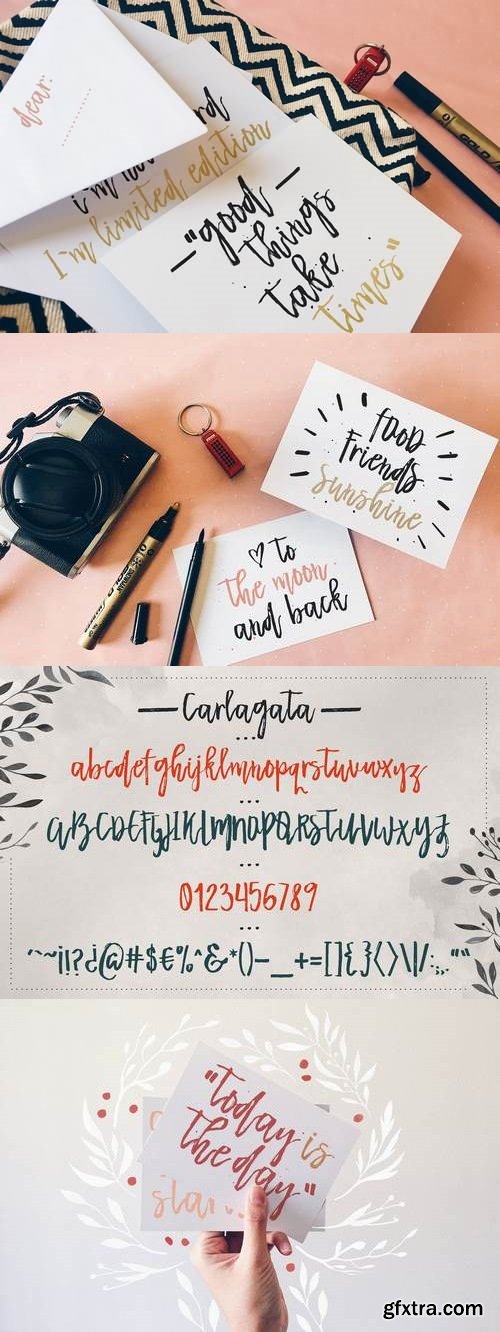 dear:
I`m limited edition
"good
things
take
times"
GOLD
food
friends
sunshine
to
the moon
and back
Carlagata
abcdefghijklmnopqrstuvwxyz
ABCDEFGHIJKLMNOPQRSTUVWXYZ
0123456789
´`¨~¡!?¿@#$€%^&*()-_+=[]{}<>\|/:;,.""
"today is
the day"
gfxtra.com